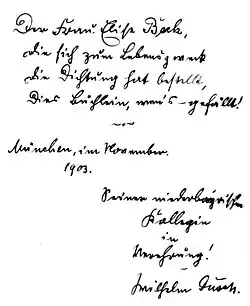 Der Frau Elise Beck,
die sich zum Lebenszweck
die Dichtung hat bestellt,
Dies Büchlein, wenn's – gefällt!
München, im November
1903.
Seiner niederbayrische
Kollegin
in
Verehrung!
Wilhelm Busch.